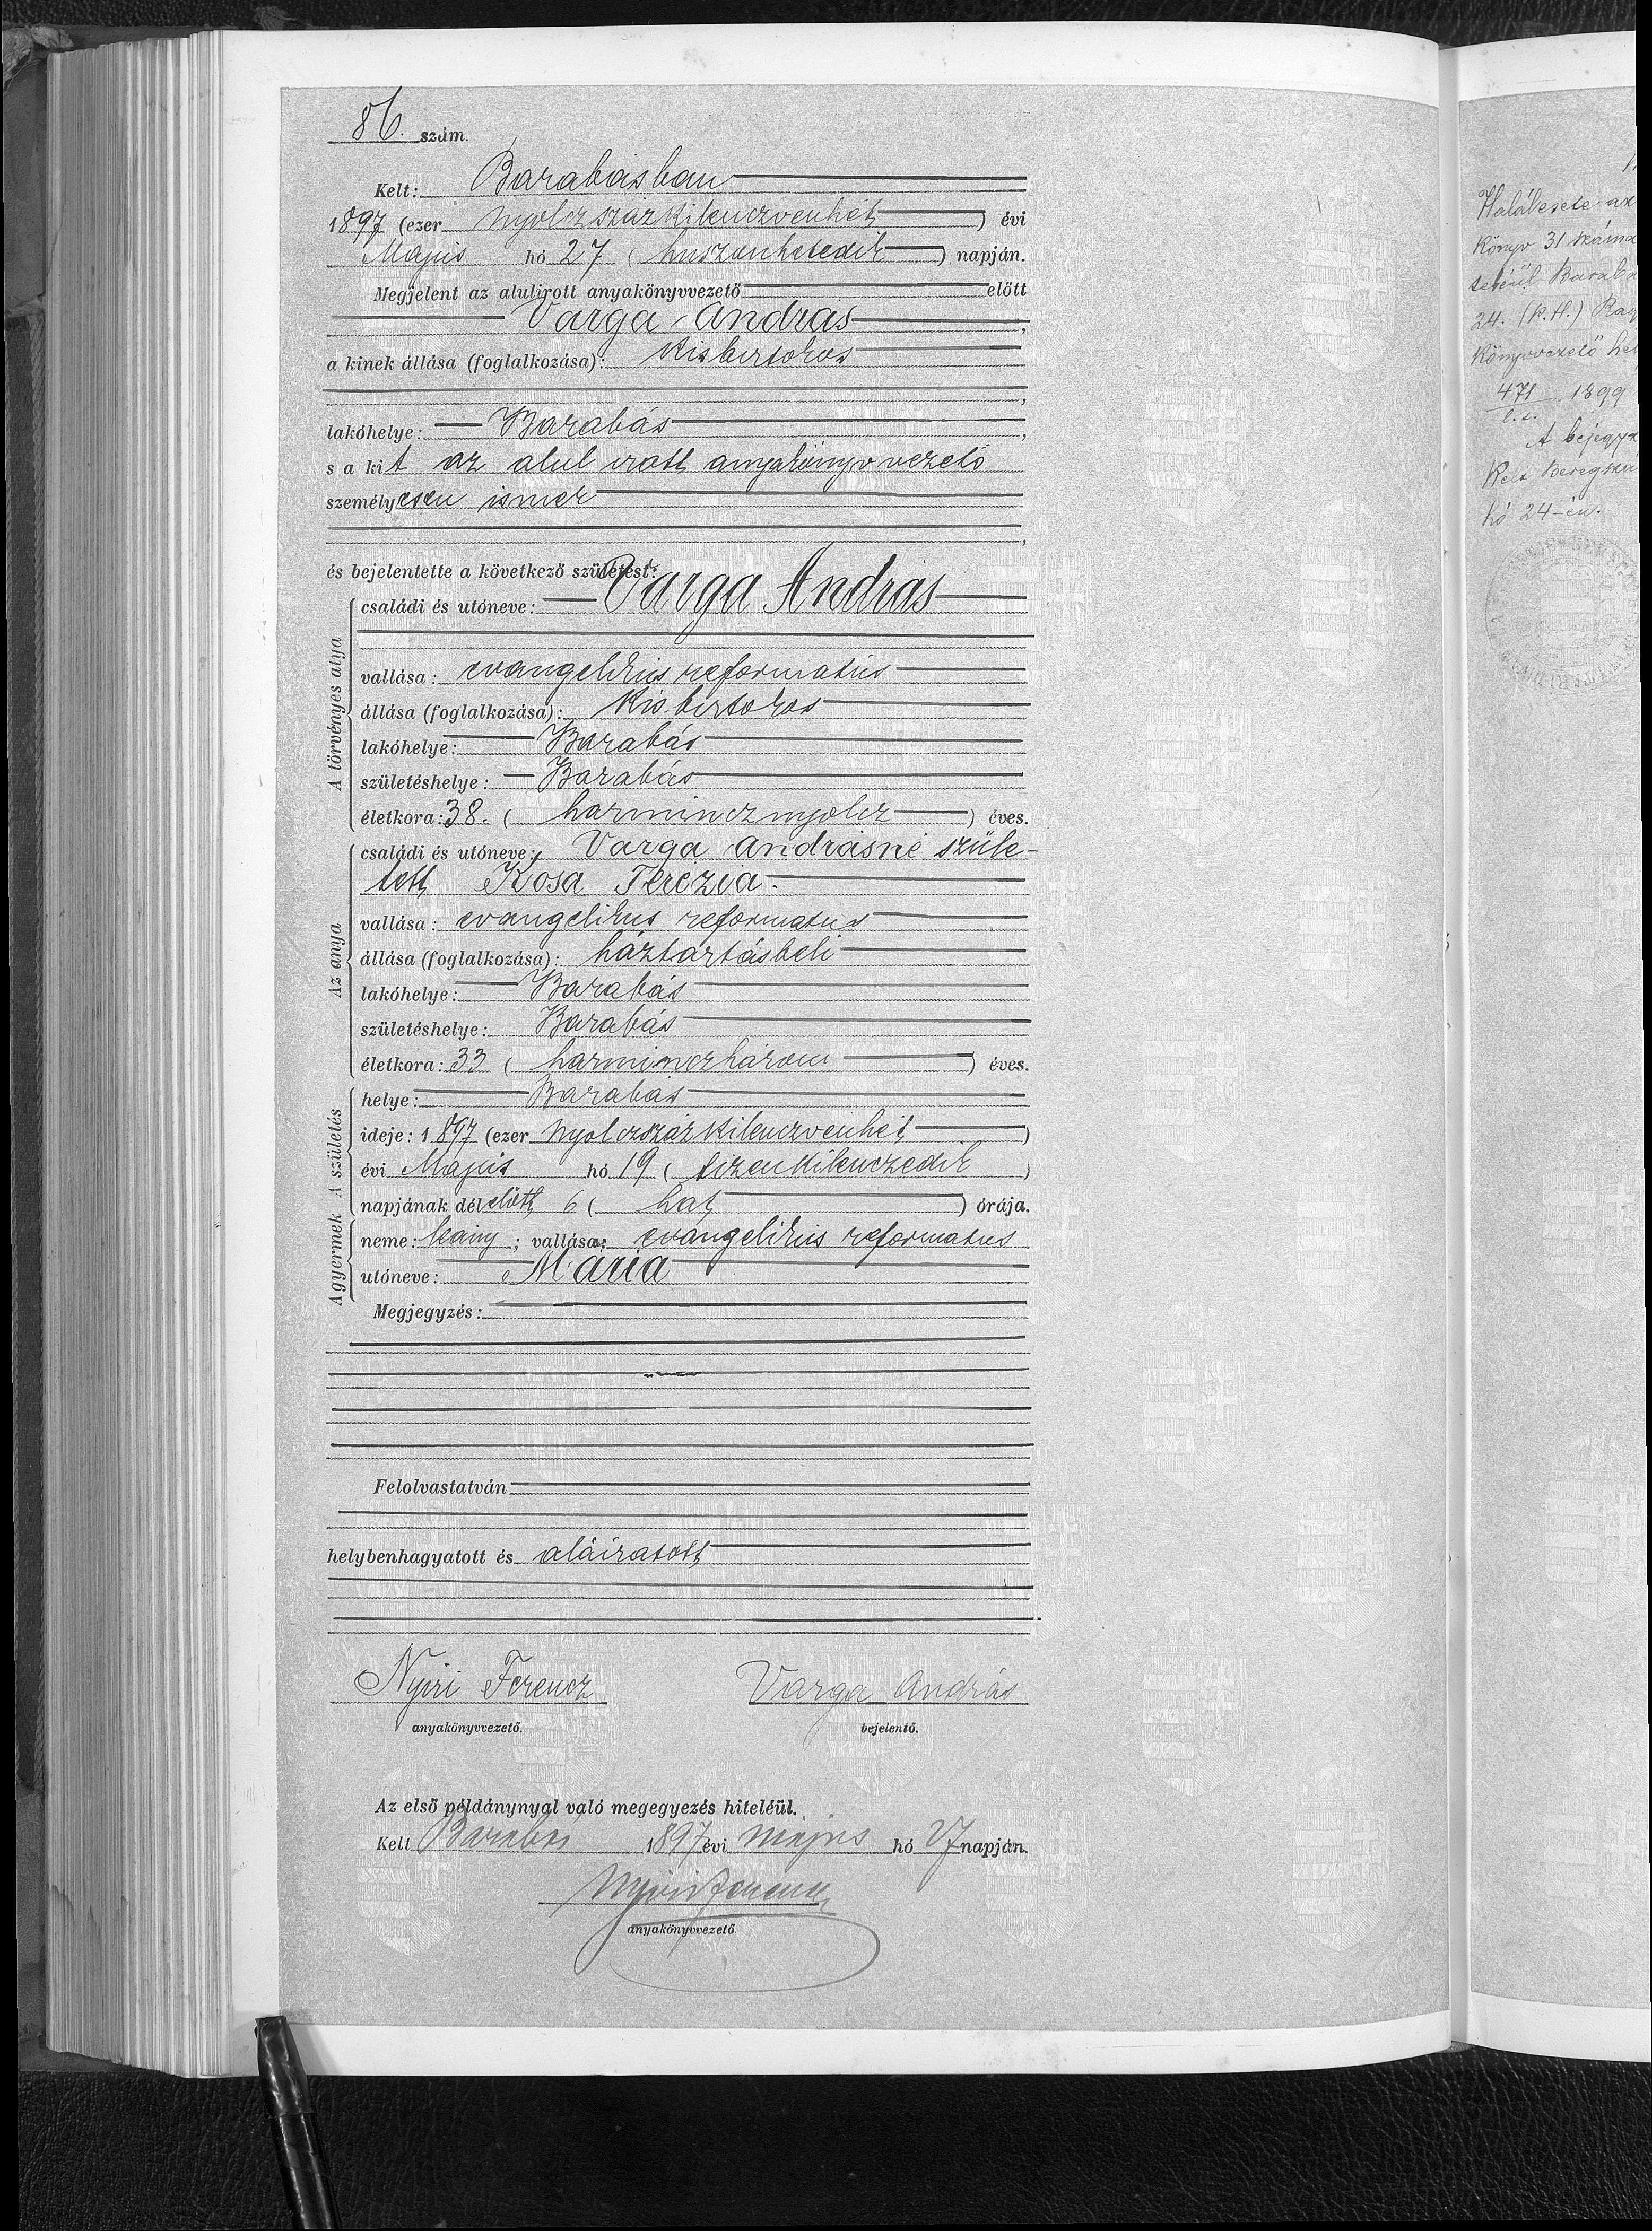 86. szám.
Kelt: Barabásban
1897 (ezer nyolczszázkilenczvenhét) évi
Május hó 27 (huszonhetedik) napján.
Megjelent az alulirott anyakönyvvezető előtt
Varga András,
a kinek állása (foglalkozása): kisbirtokos
,
lakóhelye: Barabás,
s a kit az alul irott anyakönyvvezető
személyesen ismer
,
és bejelentette a következő születést:
A törvényes atya
családi és utóneve: Varga András
vallása: evangelikus reformatus
állása (foglalkozása): Kisbirtokos
lakóhelye: Barabás
születéshelye: Barabás
életkora: 38. (harmincznyolcz) éves.
Az anya
családi és utóneve: Varga Andrásné szüle-
tett Kósa Terézia.
vallása: evangelikus reformatus
állása (foglalkozása): háztartásbeli
lakóhelye: Barabás
születéshelye: Barabás
életkora: 33 (harminczhárom) éves.
A születés
helye: Barabás
ideje: 1897 (ezer nyolczszázkilenczvenhét)
évi Május hó 19 (tizenkilenczedik)
napjának délelőtt 6 (hat) órája.
A gyermek
neme: leány; vallása: evangelikus reformatus
utóneve: Mária
Megjegyzés:
Felolvastatván
helybenhagyatott és aláiratott
Nyiri Ferencz Varga András
anyakönyvvezető. bejelentő.
Az első példánynyal való megegyezés hiteléül.
Kelt Barabás 1897 évi május hó 27 napján.
Nyiri Ferencz
anyakönyvvezető
Halálesete az
könyv 31 száma
24. (P.H.)
könyvvezető
471 1899
A bejegyz
hó 24-én.